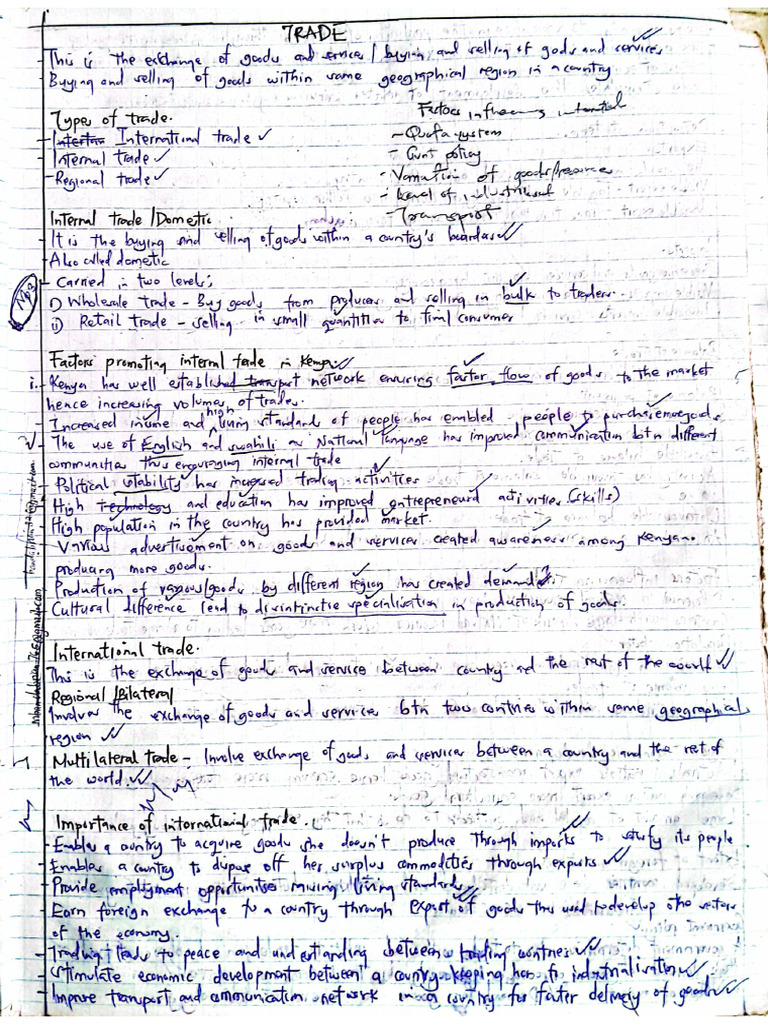 TRADE
This is the exchange of goods and services / buying and selling of goods and services
Buying and selling of goods within same geographical region in a country
Types of trade.
International trade
Internal trade
Regional trade
Factors influencing internal
- Quota system
- Gvnt policy
- Variation of goods/resource
- Level of
- Transport
Internal trade / Dometic
It is the buying and selling of goods within a country's boarders
Also called dometic
Carried in two levels;
i) Wholesale trade - Buy goods from producers and selling in bulk to traders.
ii) Retail trade - selling in small quantities to final consumer
Factors promoting internal trade in Kenya
i. Kenya has well established transport network ensuring faster flow of goods to the market
hence increasing volumes of trade.
Increased income and high living standard of people has enabled people to purchase more goods
The use of English and swahili as National language has improved communication btn different
communities thus encouraging internal trade
Political stability has increased trading activities
High technology and education has improved entrepreneurd activities (skills)
High population in the country has provided market.
Various advertisement on goods and services created awareness among Kenyans
producing more goods.
Production of various goods by different region has created demand
Cultural difference lead to specialisation in production of goods.
International trade.
This is the exchange of goods and service between country and the rest of the world
Regional / Bilateral
Involves the exchange of goods and services btn two contries within same geographical
region
Multilateral trade - Involve exchange of goods and services between a country and the rest of
the world.
Importance of international trade.
Enables a country to acquire goods she doesn't produce through imports to satisfy its people
Enables a country to dispose off her surplus commodities through exports
Provide employment opportunities raising living standards
Earn foreign exchange to a country through export of goods thus used to develop other sectors
of the economy.
Trading leads to peace and understanding between trading countries
Stimulate economic development between a country keeping her to industrialisation
Improve transport and communication network in a country for faster delivery of goods